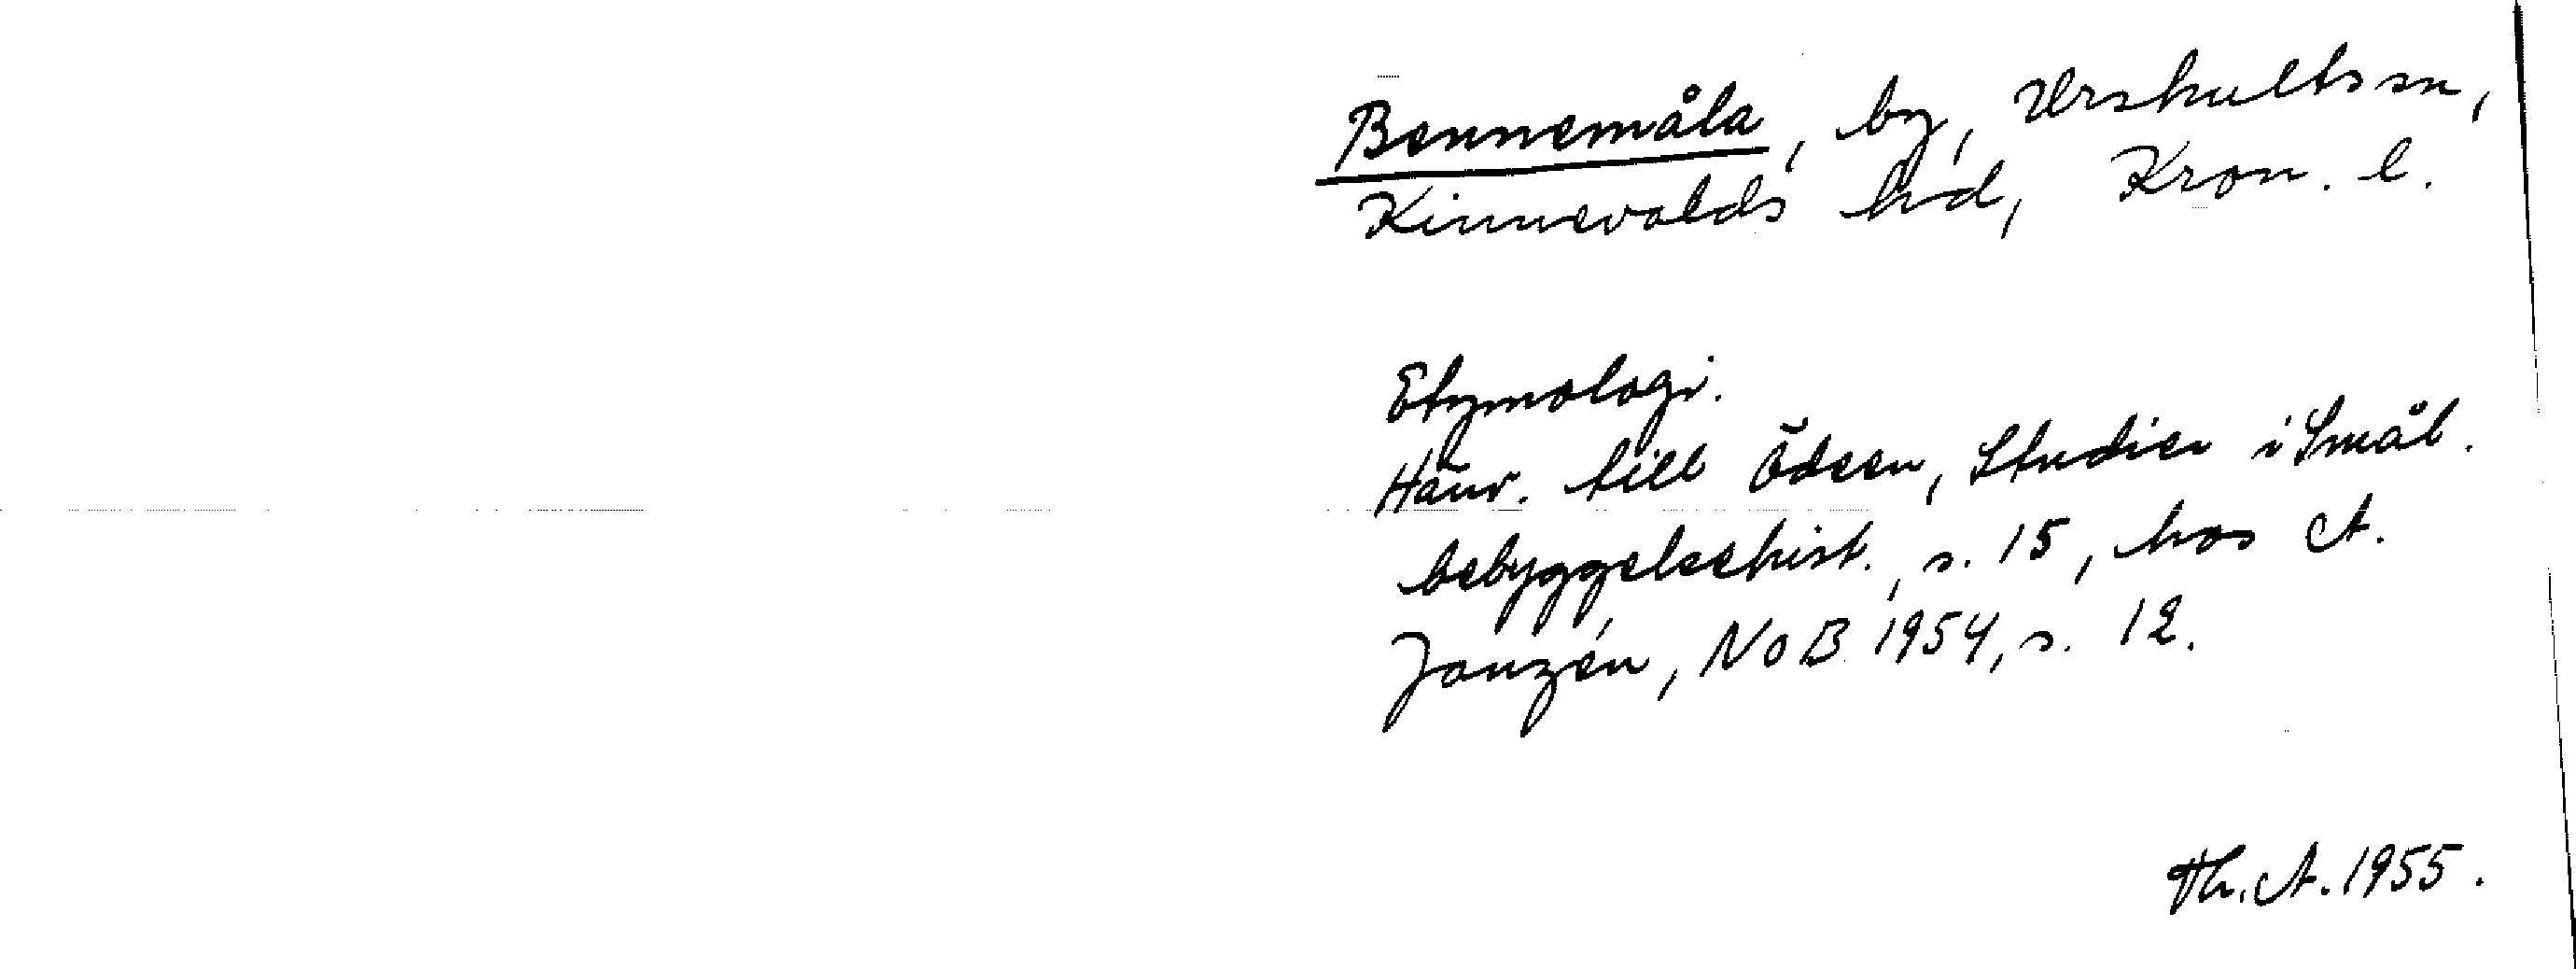 Bennemåla, by, Urshults sn,
Kinnevalds hd, Kron. l.
Etymologi.
Hänv. till Ödeen, Studier i Smål.
bebyggelsehist., s. 15, hos A.
Janzén, NoB 1954, s. 12.
Th. A. 1955.